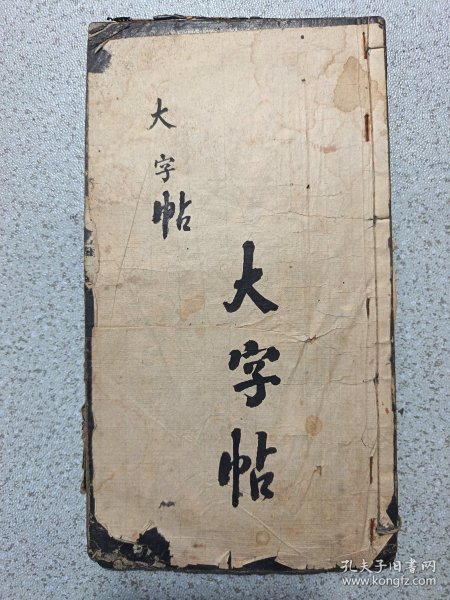 大字帖
大字帖
孔夫子旧书网
www.kongfz.com